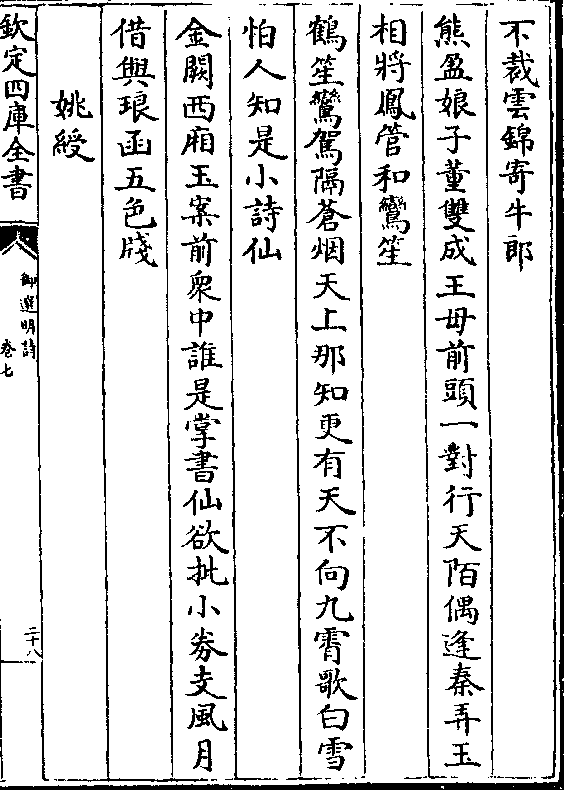 不裁雲錦寄牛郎
熊盈娘子董雙成王母前頭一對行天陌偶逢秦弄玉
相將鳳管和鸞笙
鶴笙鸞駕隔蒼烟天上那知更有天不向九霄歌白雪
怕人知是小詩仙
金闕西廂玉案前衆中誰是掌書仙欲批小券支風月
借與琅函五色牋
姚綬
欽定四庫全書
御選明詩
卷七
二十八